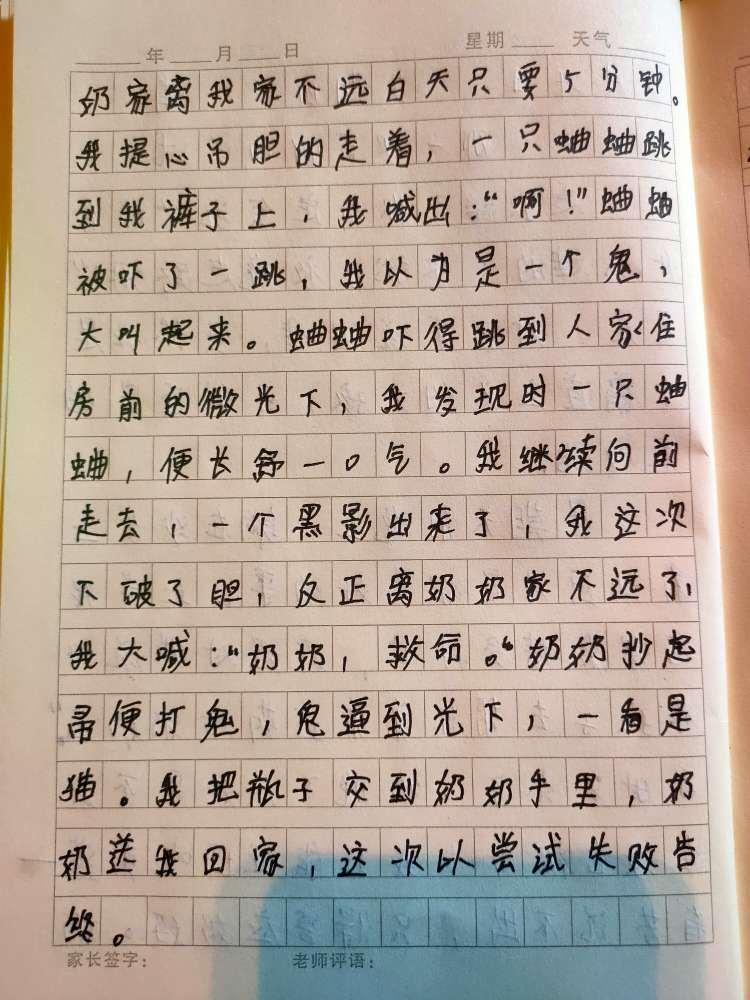 年 月 日 星期 天气
奶家离我家不远白天只要5分钟。
我提心吊胆的走着，一只蛐蛐跳
到我裤子上，我喊出：“啊！”蛐蛐
被吓了一跳，我以为是一个鬼，
大叫起来。蛐蛐吓得跳到人家住
房前的微光下，我发现时一只蛐
蛐，便长舒一口气。我继续向前
走去，一个黑影出来了，我这次
下破了胆，反正离奶奶家不远了，
我大喊：“奶奶，救命。“奶奶抄起
帚便打鬼，鬼逼到光下，一看是
猫。我把瓶子交到奶奶手里，奶
奶送我回家，这次以尝试失败告
终。
家长签字： 老师评语：